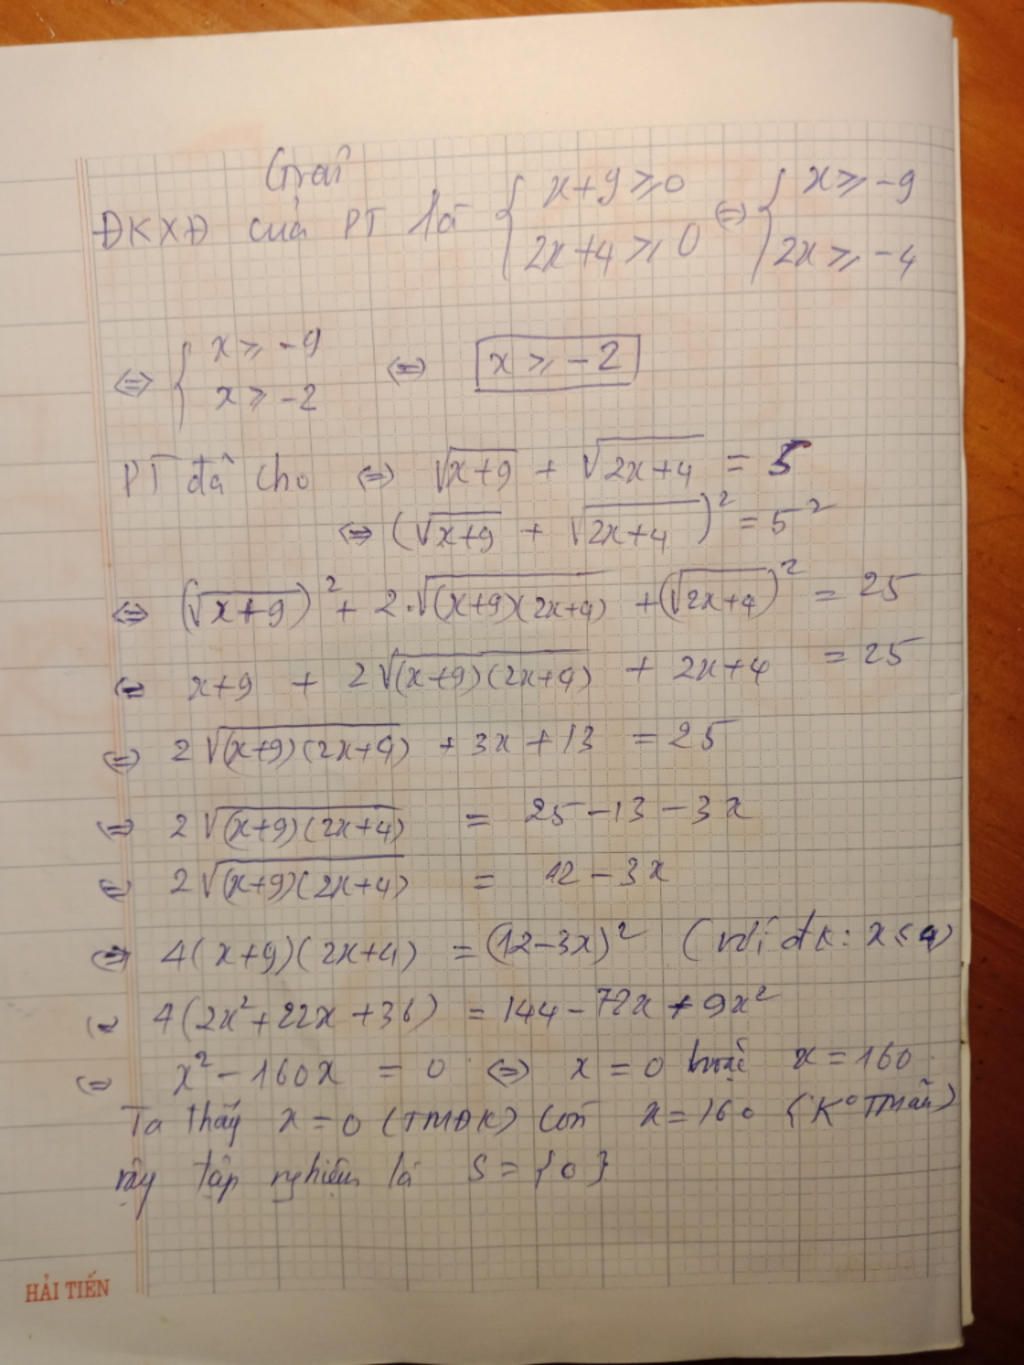 Giải
ĐKXĐ của PT là { x+9 ≥ 0 ; 2x+4 ≥ 0 ⇔ { x ≥ -9 ; 2x ≥ -4
⇔ { x ≥ -9 ; x ≥ -2 ⇔ x ≥ -2
PT đã cho ⇔ √(x+9) + √(2x+4) = 5
⇔ (√(x+9) + √(2x+4))² = 5²
⇔ (√(x+9))² + 2.√((x+9)(2x+4)) + (√(2x+4))² = 25
⇔ x+9 + 2√((x+9)(2x+4)) + 2x+4 = 25
⇔ 2√((x+9)(2x+4)) + 3x+13 = 25
⇔ 2√((x+9)(2x+4)) = 25-13-3x
⇔ 2√((x+9)(2x+4)) = 12-3x
⇔ 4(x+9)(2x+4) = (12-3x)² (với đk: x ≤ 4)
⇔ 4(2x²+22x+36) = 144-72x+9x²
⇔ x²-160x = 0 ⇔ x=0 hoặc x=160
Ta thấy x=0 (TMĐK) còn x=160 (K° TMãn)
vậy tập nghiệm là S={0}
HẢI TIẾN